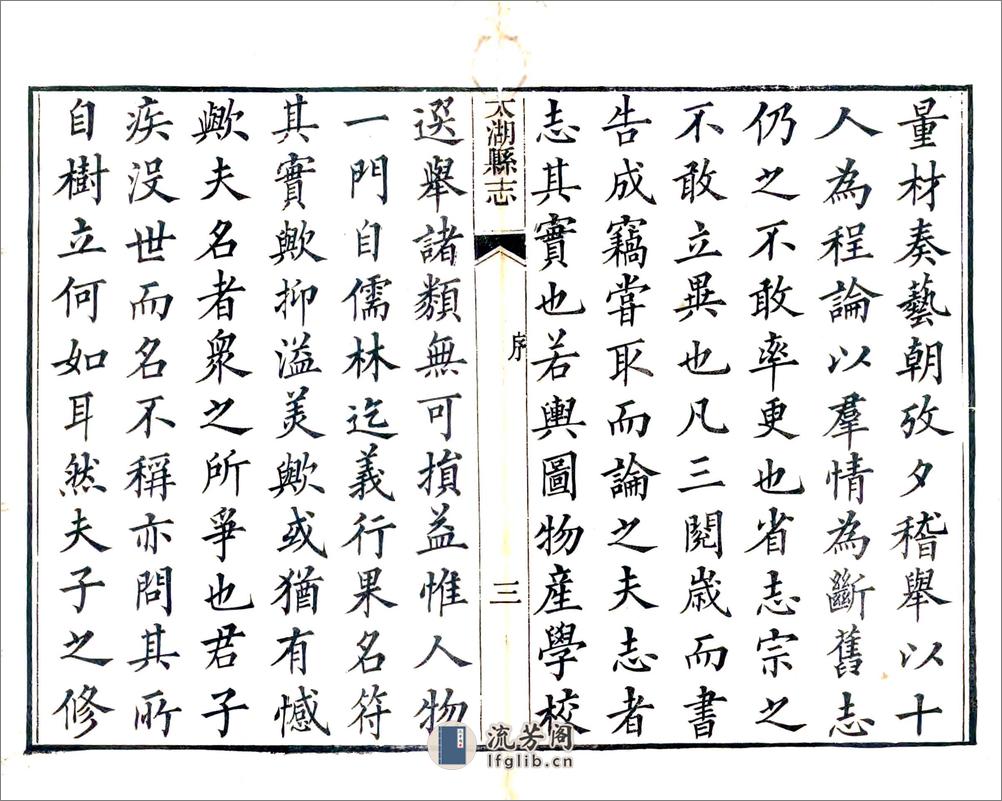 量材奏藝朝攷夕稽舉以十
人為程論以羣情為斷舊志
仍之不敢率更也省志宗之
不敢立異也凡三閱歲而書
告成竊嘗取而論之夫志者
志其實也若輿圖物産學校
太湖縣志
序
三
選舉諸類無可損益惟人物
一門自儒林迄義行果名符
其實歟抑溢美歟或猶有憾
歟夫名者衆之所爭也君子
疾沒世而名不稱亦問其所
自樹立何如耳然夫子之修
流芳阁
lfglib.cn